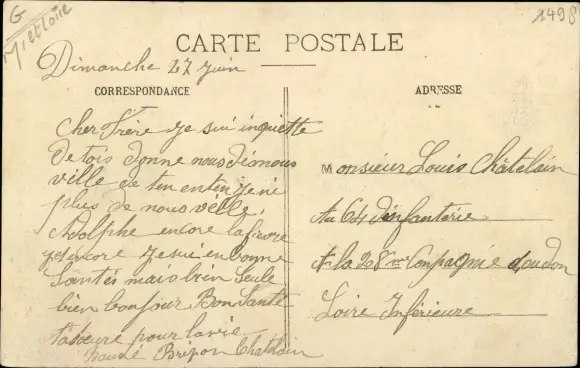 G
M et Loire
1498
CARTE POSTALE
Dimanche 27 juin
CORRESPONDANCE
ADRESSE
Cher Frère je sui inquiette
de tois donne nous de nous
ville de ten en ten je né
plus de nous velle.
Adolphe encore la fievre
je sui en bonne
Santés mais bien Seule
bien bonjour Bon Santé
ta soeure pour la vie
Brizon Chatelain
Monsieur Louis Châtelain
Au 64 d'infanterie
A la 28me Compagnie doudon
Loire Inférieure